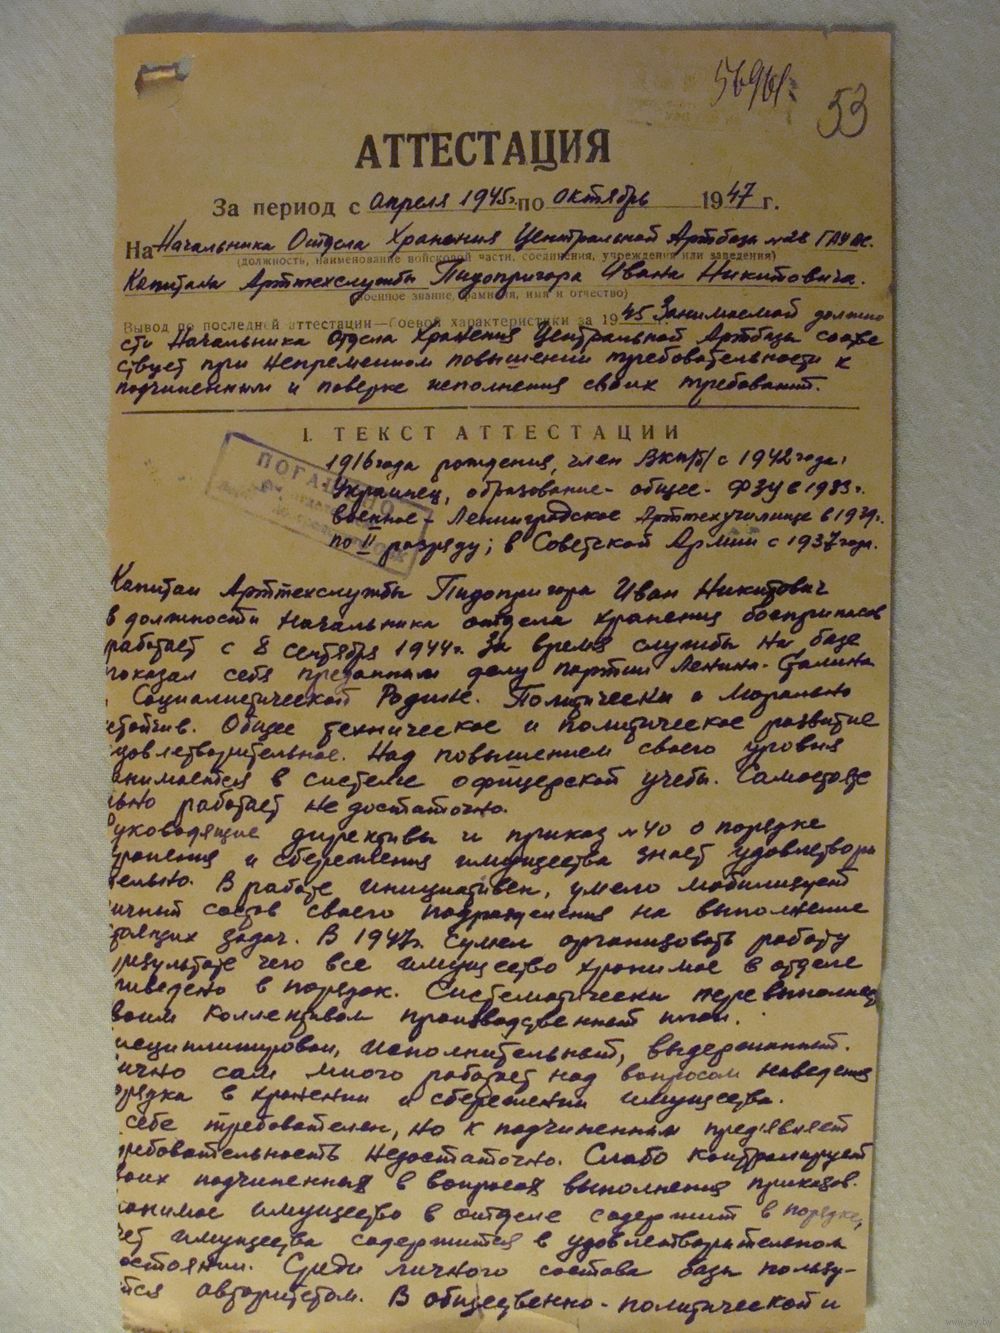 53
АТТЕСТАЦИЯ
За период с апреля 1945г. по октябрь 1947 г.
На Начальника Отдела Хранения Центральной Артбазы №28 ГАУ ВС.
(должность, наименование войсковой части, соединения, учреждения или заведения)
Капитана Арттехслужбы Пидопригора Ивана Никитовича.
(военное звание, фамилия, имя и отчество)
Вывод по последней аттестации—боевой характеристики за 1945 г. Занимаемой должно
сти Начальника отдела Хранения Центральной Артбазы соответ
ствует при непременном повышении требовательности к
подчиненным и поверке исполнения своих требований.
I. ТЕКСТ АТТЕСТАЦИИ
ПОГАШЕНО
1916 года рождения, член ВКП/б/ с 1942 года,
Украинец, образование - общее - ФЗУ в 1933г.
военное - Ленинградское Арттехучилище в 1939г.
по II разряду; в Советской Армии с 1937 года.
Капитан Арттехслужбы Пидопригора Иван Никитович
в должности Начальника отдела хранения боеприпасов
работает с 8 сентября 1944г. За время службы на базе
показал себя преданным делу партии Ленина-Сталина
Социалистической Родине. Политически и морально
устойчив. Общее техническое и политическое развитие
удовлетворительное. Над повышением своего уровня
занимается в системе офицерской учебы. Самостояте
льно работает недостаточно.
Руководящие директивы и приказ №40 о порядке
хранения и сбережения имущества знает удовлетвори
тельно. В работе инициативен, умело мобилизует
личный состав своего подразделения на выполнение
стоящих задач. В 1947г. сумел организовать работу
результате чего все имущество хранимое в отделе
приведено в порядок. Систематически перевыполняет
своим коллективом производственный план.
Дисциплинирован, исполнительный, выдержанный.
Лично сам много работает над вопросом наведения
порядка в хранении и сбережении имущества.
себе требователен, но к подчиненным предъявляет
требовательность недостаточно. Слабо контролирует
своих подчиненных в вопросах выполнения приказов.
Хранимое имущество в отделе содержит в порядке,
учет имущества содержится в удовлетворительном
состоянии. Среди личного состава базы пользу-
ется авторитетом. В общественно-политической и